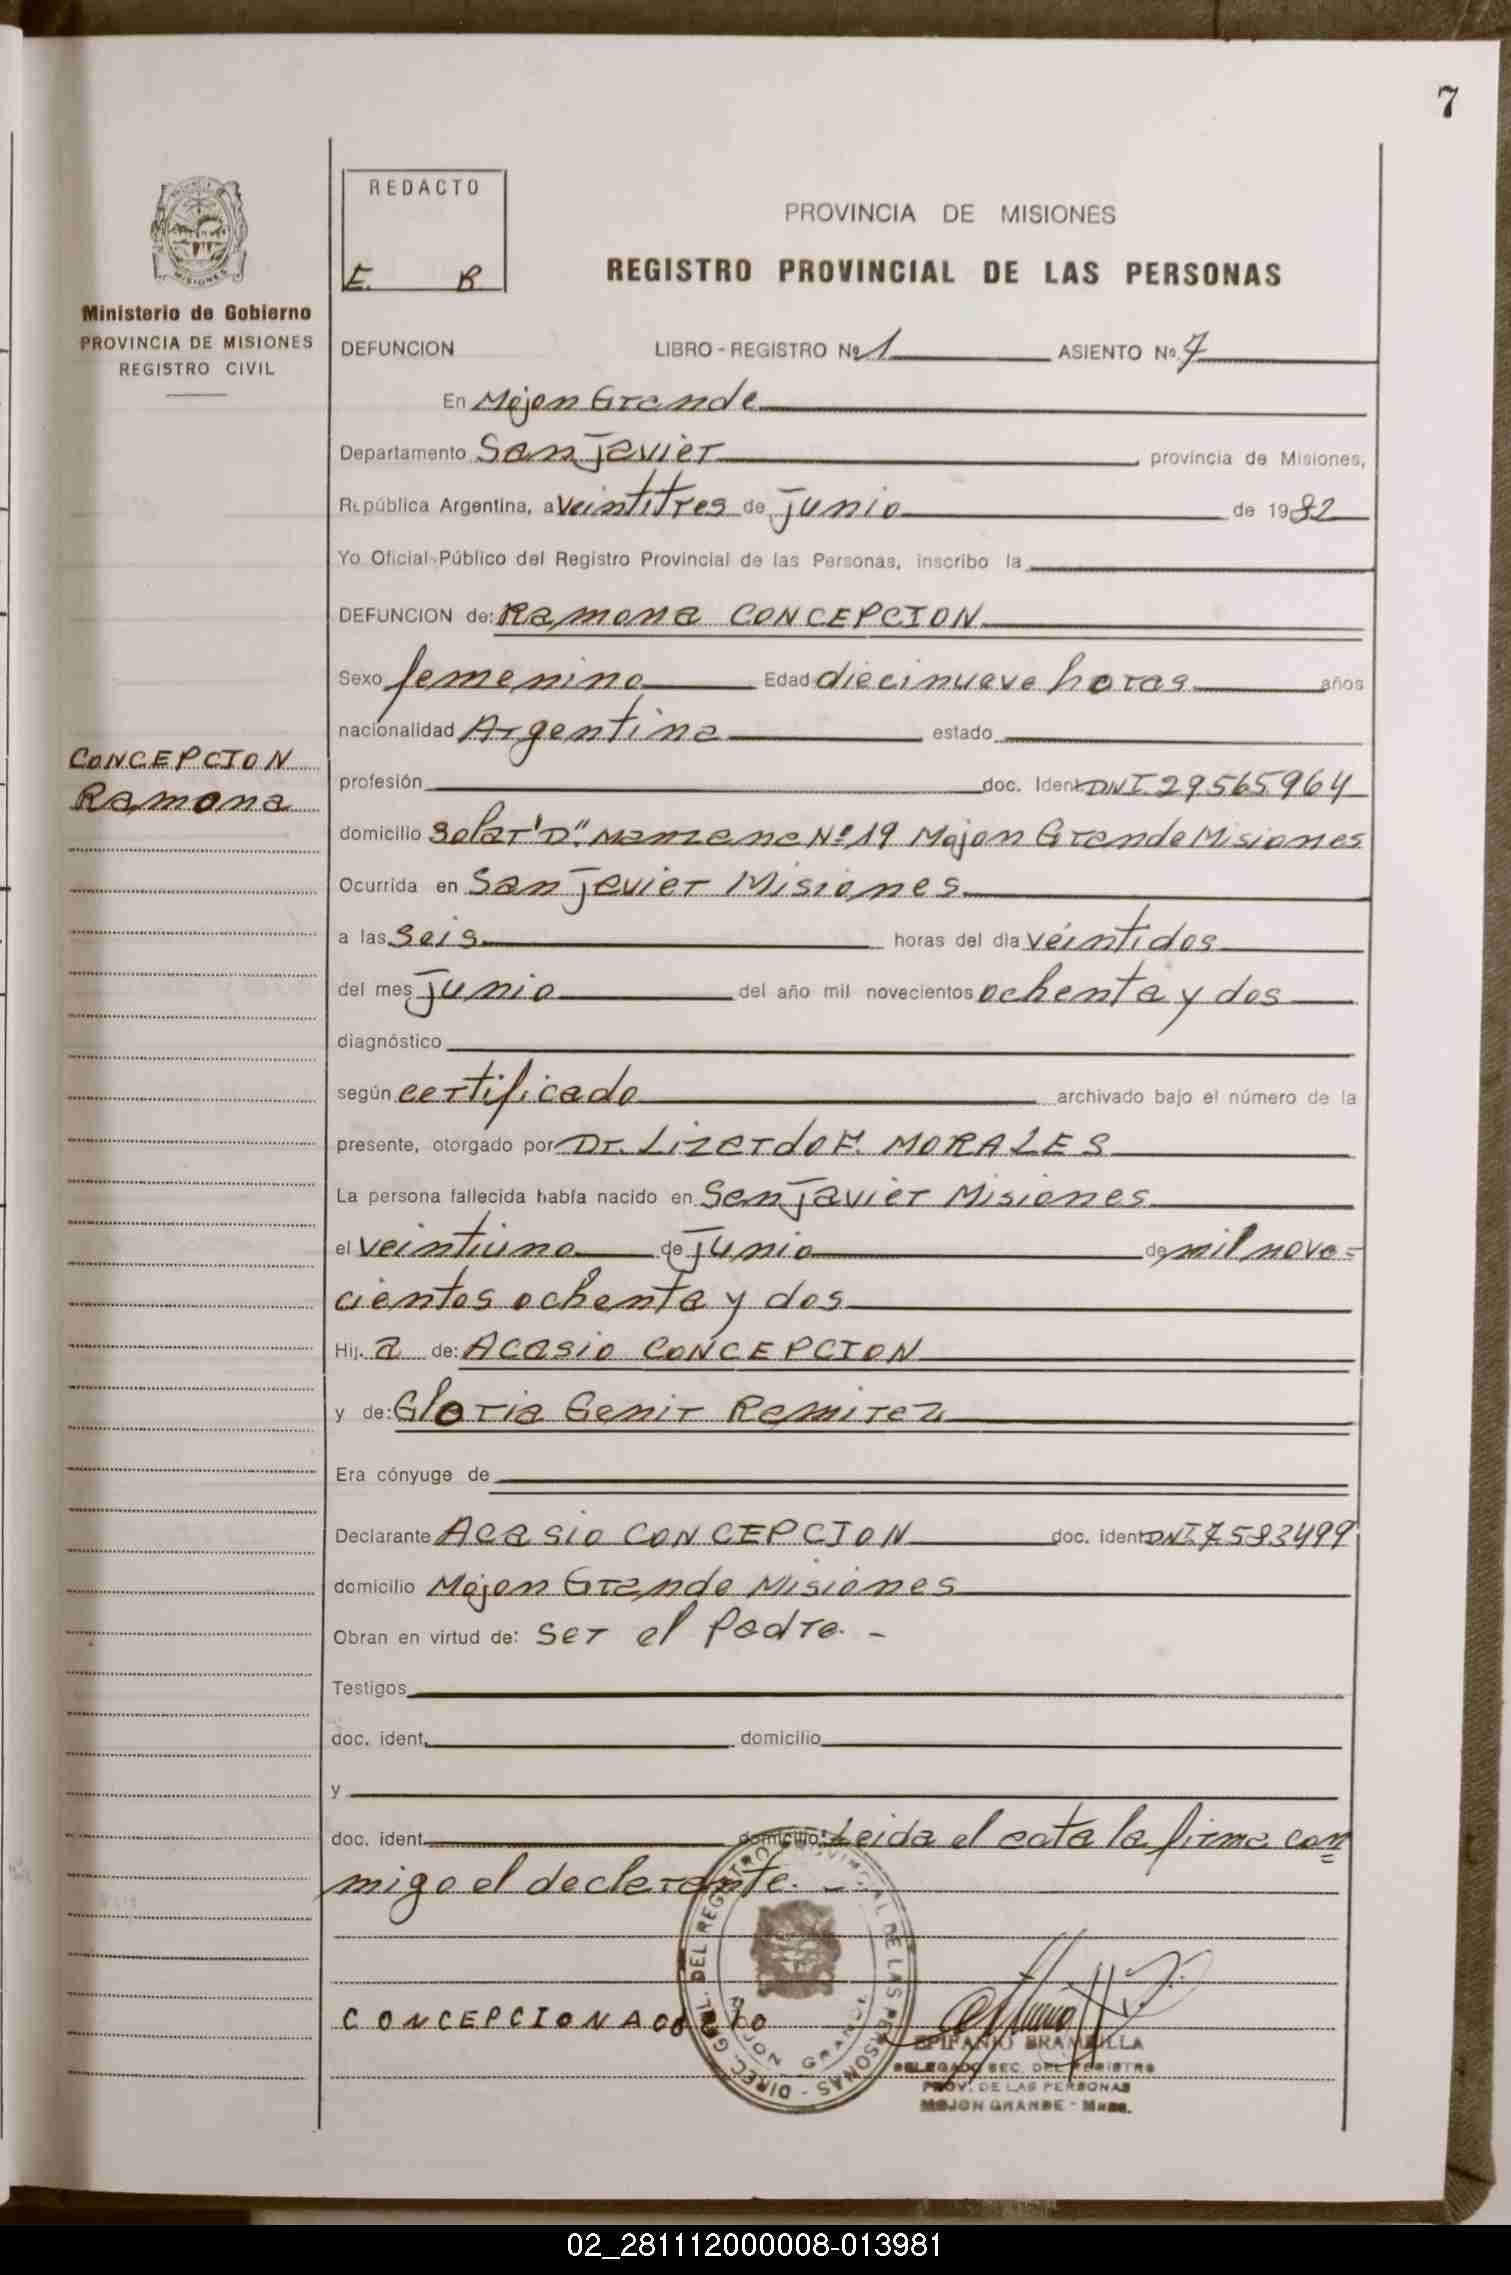 7
REDACTO
E. B
PROVINCIA DE MISIONES
REGISTRO PROVINCIAL DE LAS PERSONAS
MISIONES
Ministerio de Gobierno
PROVINCIA DE MISIONES
REGISTRO CIVIL
DEFUNCION LIBRO - REGISTRO Nº 1 ASIENTO Nº 7
En Mojon Grande
Departamento San Javier, provincia de Misiones,
República Argentina, a veintitres de junio de 1982
Yo Oficial Público del Registro Provincial de las Personas, inscribo la
DEFUNCION de: Ramona CONCEPCION
Sexo femenino Edad diecinueve horas años
nacionalidad Argentina estado
CONCEPCION
Ramona
profesión doc. Ident. DNI. 29565964
domicilio Solar "D". Manzana Nº 19 Mojon Grande Misiones
Ocurrida en San Javier Misiones
a las seis horas del día veintidos
del mes junio del año mil novecientos ochenta y dos
diagnóstico
según certificado archivado bajo el número de la
presente, otorgado por Dr. Lizardo F. MORALES
La persona fallecida había nacido en San Javier Misiones
el veintiuno de junio de mil nove=
cientos ochenta y dos
Hij. a de: Acasio CONCEPCION
y de: Gloria Genir Ramirez
Era cónyuge de
Declarante Acasio CONCEPCION doc. ident. DNI. 7.583499
domicilio Mojon Grande Misiones
Obran en virtud de: ser el Padre. -
Testigos
doc. ident. domicilio
y
doc. ident. domicilio: Leida el acta la firma con=
migo el declarante. -
CONCEPCION ACACIO
DIREC. GRAL. DEL REGISTRO PROVINCIAL DE LAS PERSONAS -
MOJON GRANDE
EPIFANIO BRAMBILLA
DELEGADO SEC. DEL REGISTRO
PROV. DE LAS PERSONAS
MOJON GRANDE - Mnes.
02_281112000008-013981